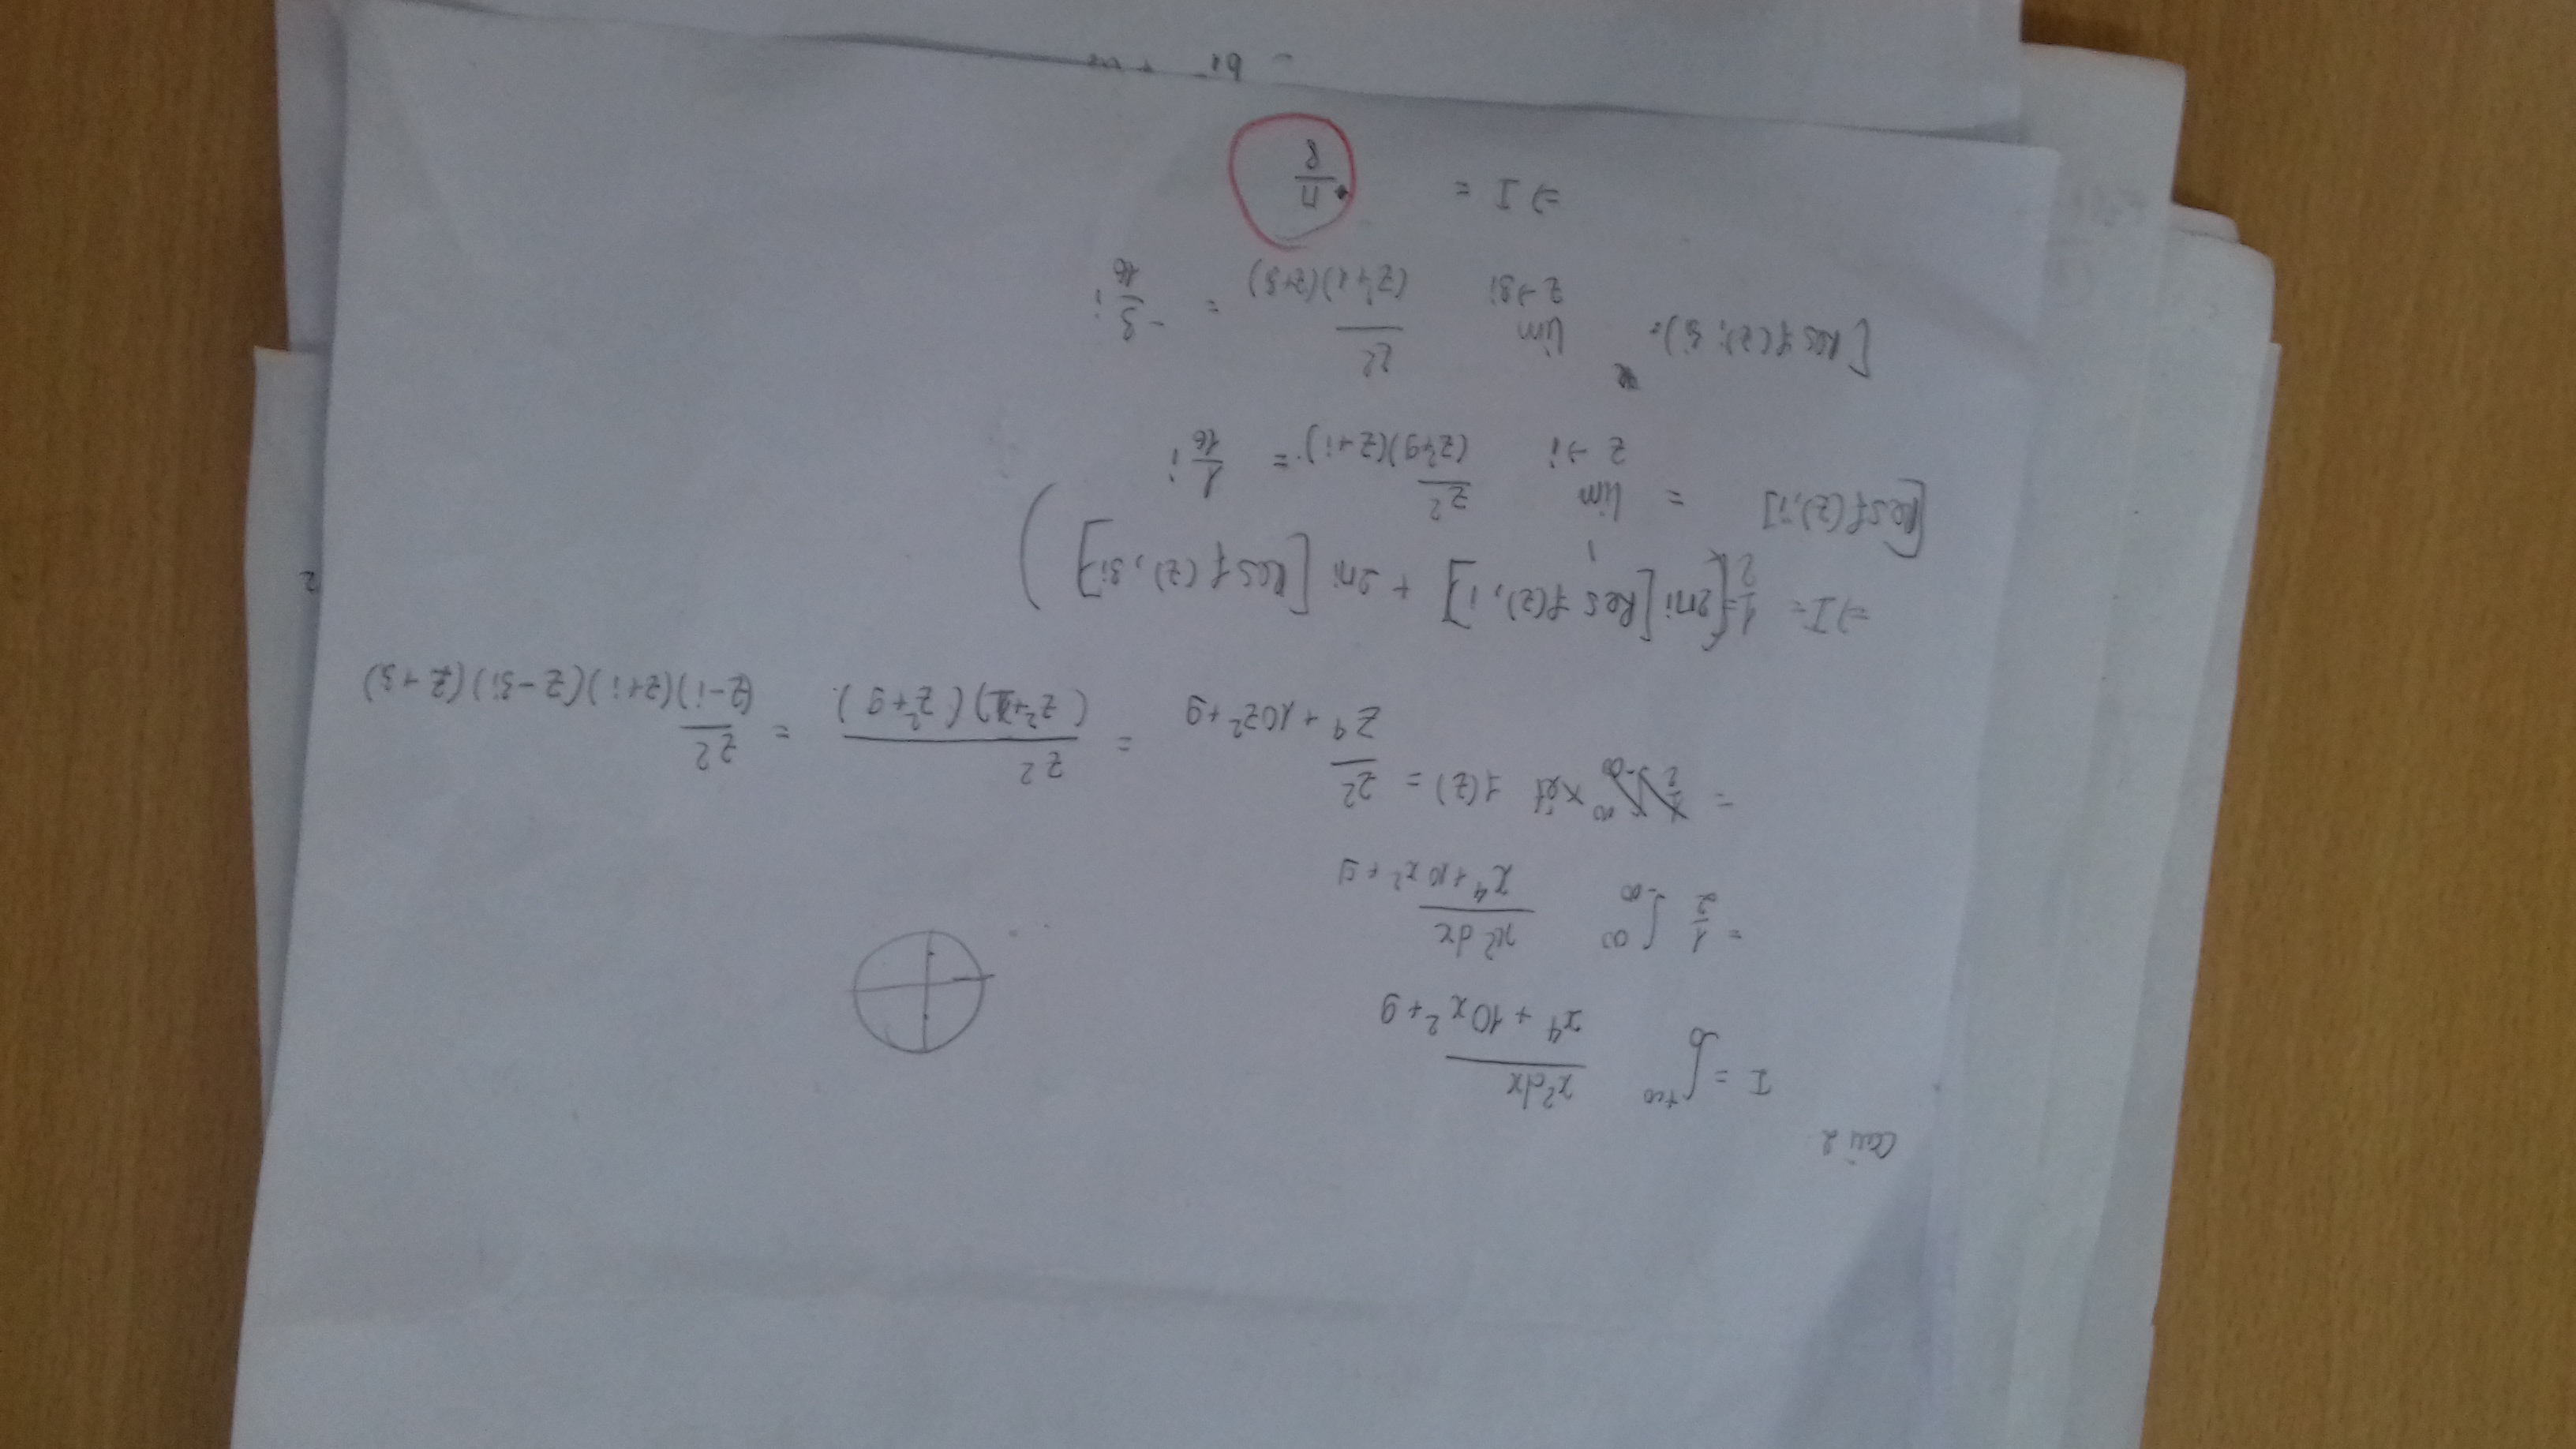 Câu 2
I = ∫₀^{+∞} x²dx / (x⁴ + 10x² + 9)
= 1/2 ∫_{-∞}^{∞} x²dx / (x⁴ + 10x² + 9)
= xét f(z) = z² / (z⁴ + 10z² + 9) = z² / ((z²+1)(z²+9)) = z² / ((z-i)(z+i)(z-3i)(z+3))
⇒ I = 1/2 (2πi [Res f(z), i] + 2πi [Res f(z), 3i])
[Res f(z), i] = lim_{z→i} z² / ((z²+9)(z+i)) = 1/16 i
[Res f(z); 3i) = lim_{z→3i} z² / ((z²+1)(z+3)) = -3/16 i
⇒ I = π/8